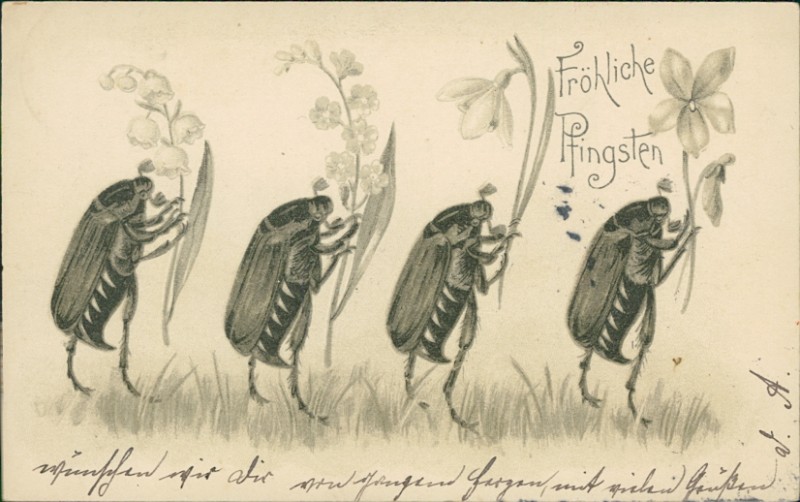 Fröhliche
Pfingsten
wünschen wir Dir von ganzem Herzen, mit vielen Grüßen
D. A.